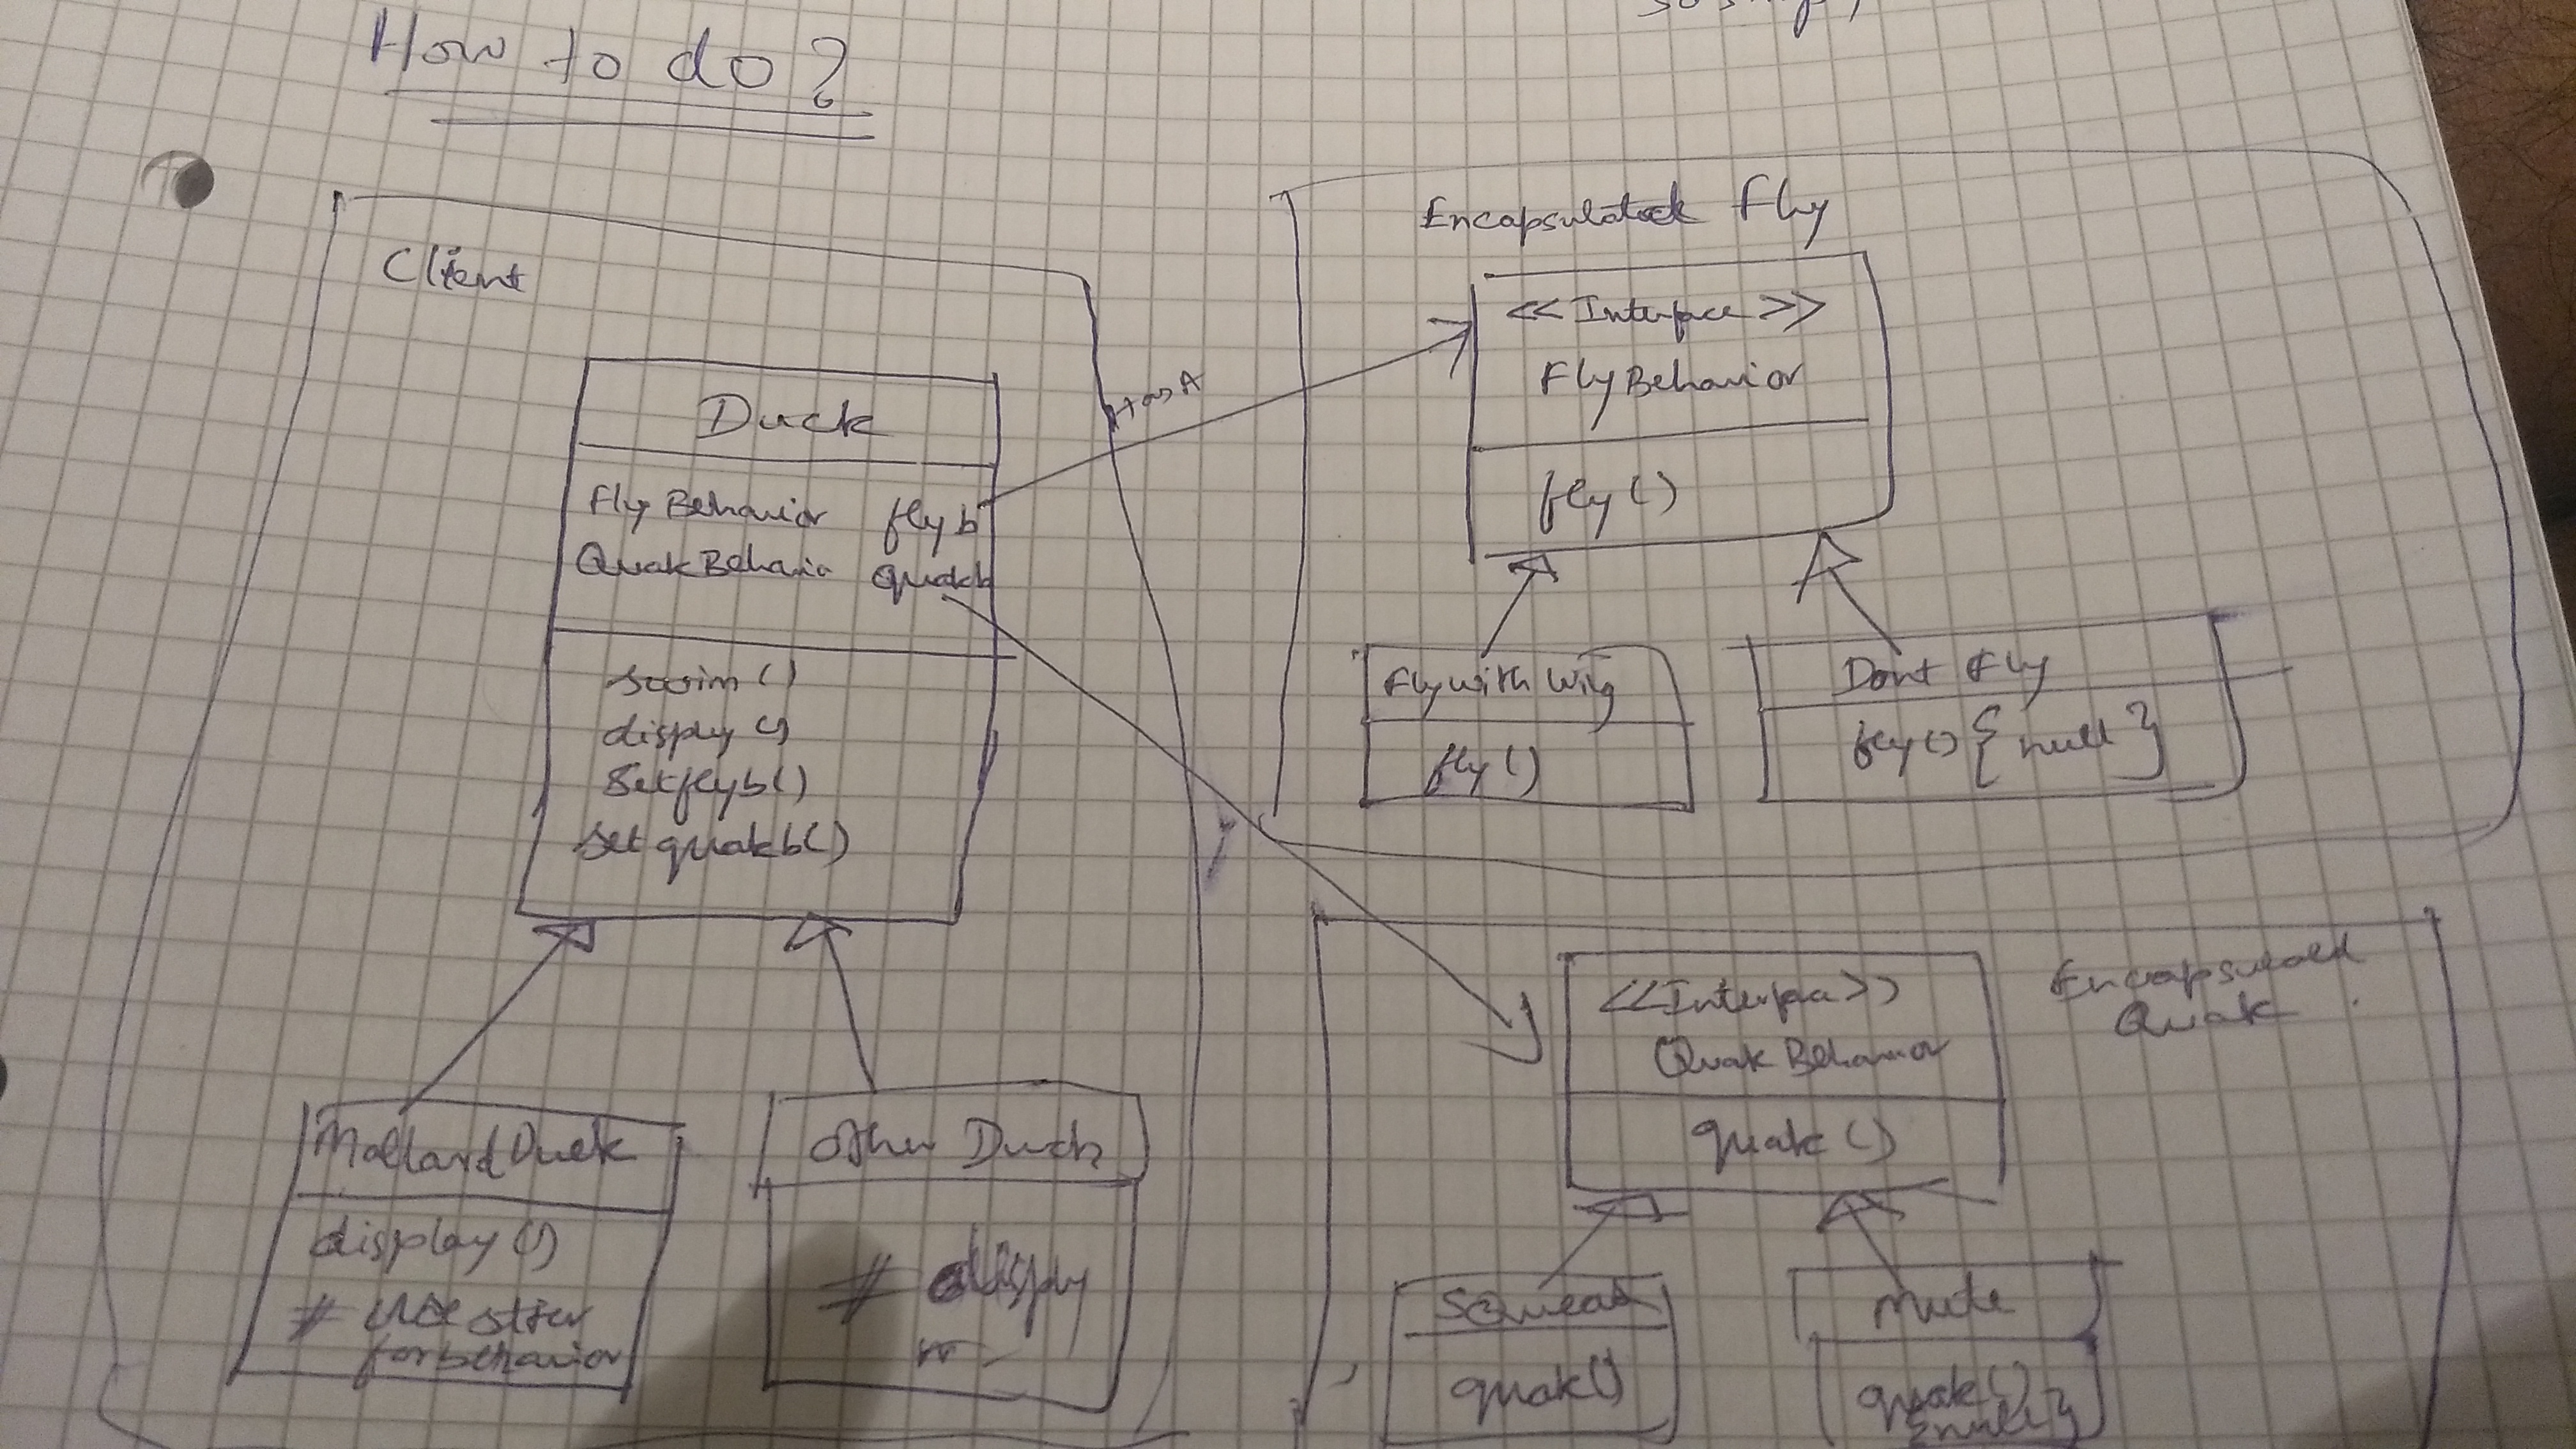 How to do?
Client
Duck
Fly Behavior flyb
QuakBehavior quakb
swim ()
display ()
Setflyb()
Set quakb()
MallardDuck
display ()
# use setter
for behavior
Other Duck
# display
Has A
Encapsulated Fly
<< Interface >>
FlyBehavior
fly ()
Flywith Wing
fly ()
Dont Fly
fly () { null }
Encapsulated
Quak
<<Interface>>
Quak Behavior
quak ()
Squeak
quak()
Mute
quak()
{null}